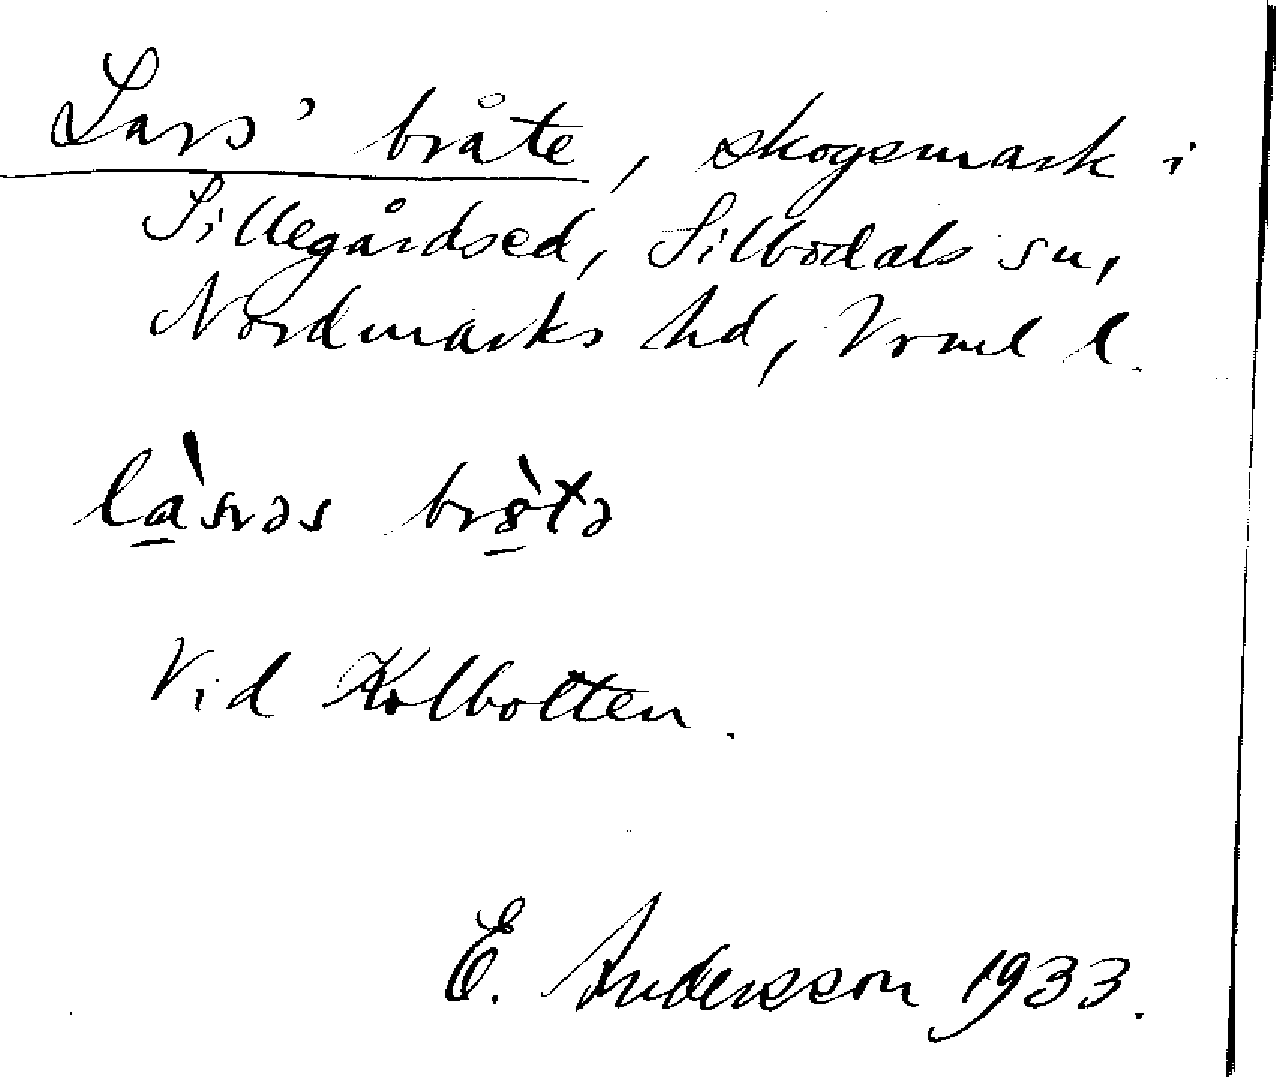 Lars' bråte, skogsmark i
Sillegårdsed, Silbodals sn,
Nordmarks hd, Vrml l.
Vid Kolbotten.
E. Andersson 1933.